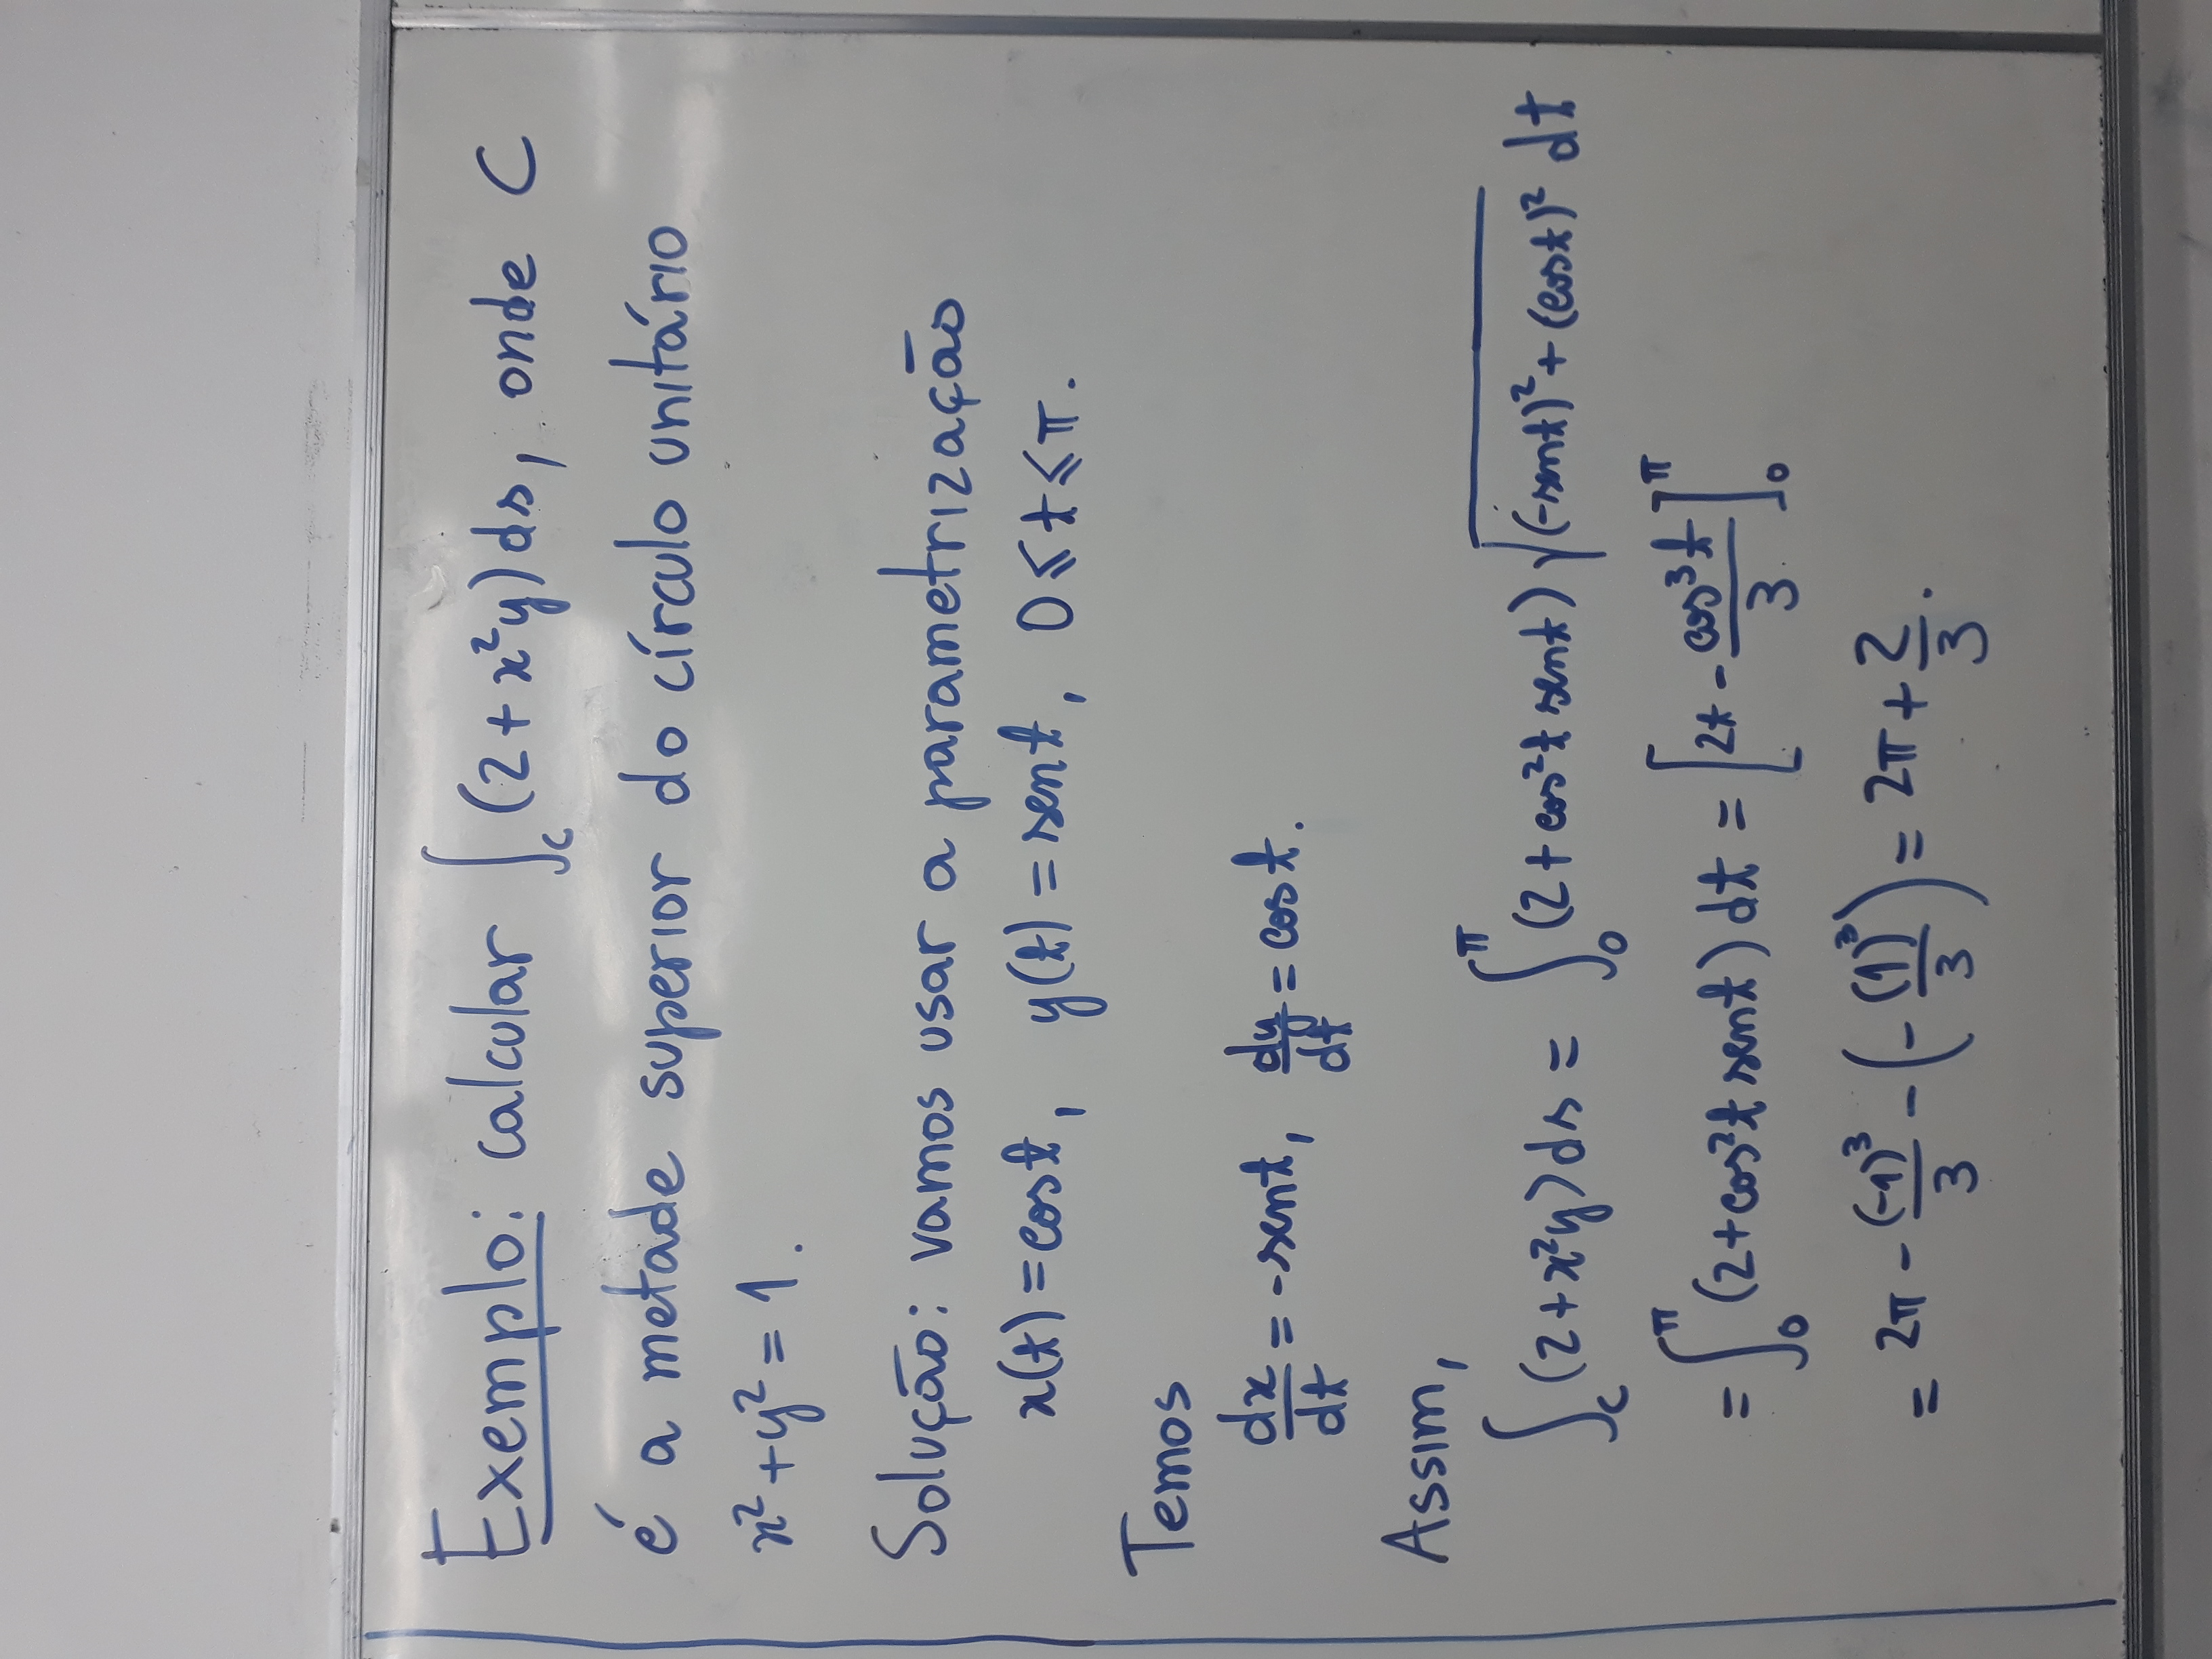 Exemplo: calcular ∫_C (2 + x²y) ds, onde C
é a metade superior do círculo unitário
x² + y² = 1.
Solução: vamos usar a parametrização
x(t) = cos t, y(t) = sen t, 0 ⩽ t ⩽ π.
Temos
dx/dt = -sen t, dy/dt = cos t.
Assim,
∫_C (2 + x²y) ds = ∫_0^π (2 + cos²t sen t) √((-sen t)² + (cos t)²) dt
= ∫_0^π (2 + cos²t sen t) dt = [2t - cos³t/3]_0^π
= 2π - (-1)³/3 - (-(1)³/3) = 2π + 2/3.